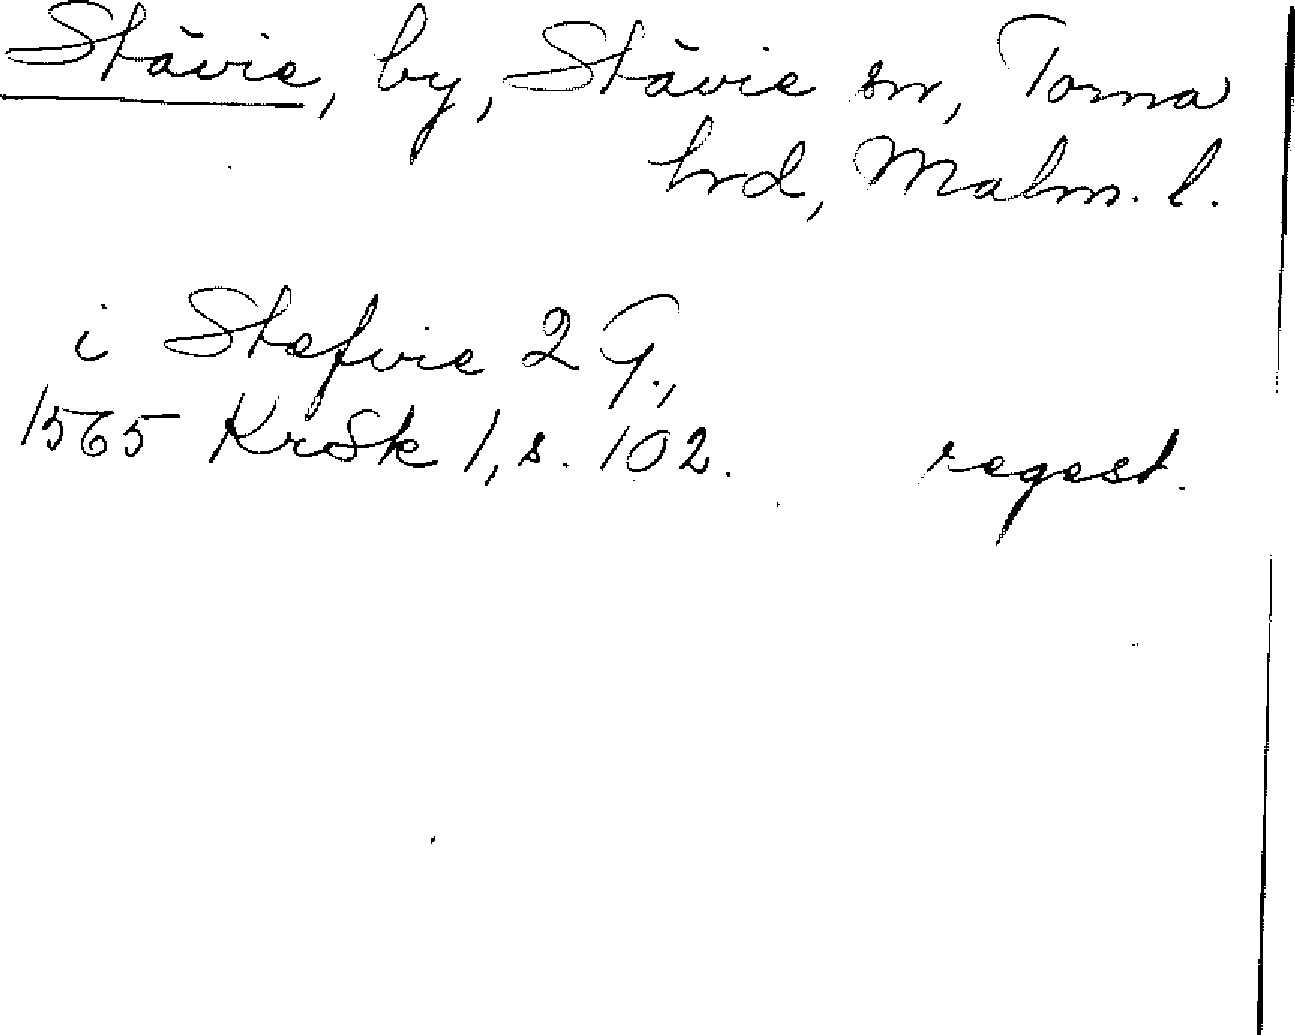 Stävie, by, Stävie sn, Torna
hrd, Malm. l.
i Stefvie 2 G.,
1565 KrSk 1, s. 102. regest.